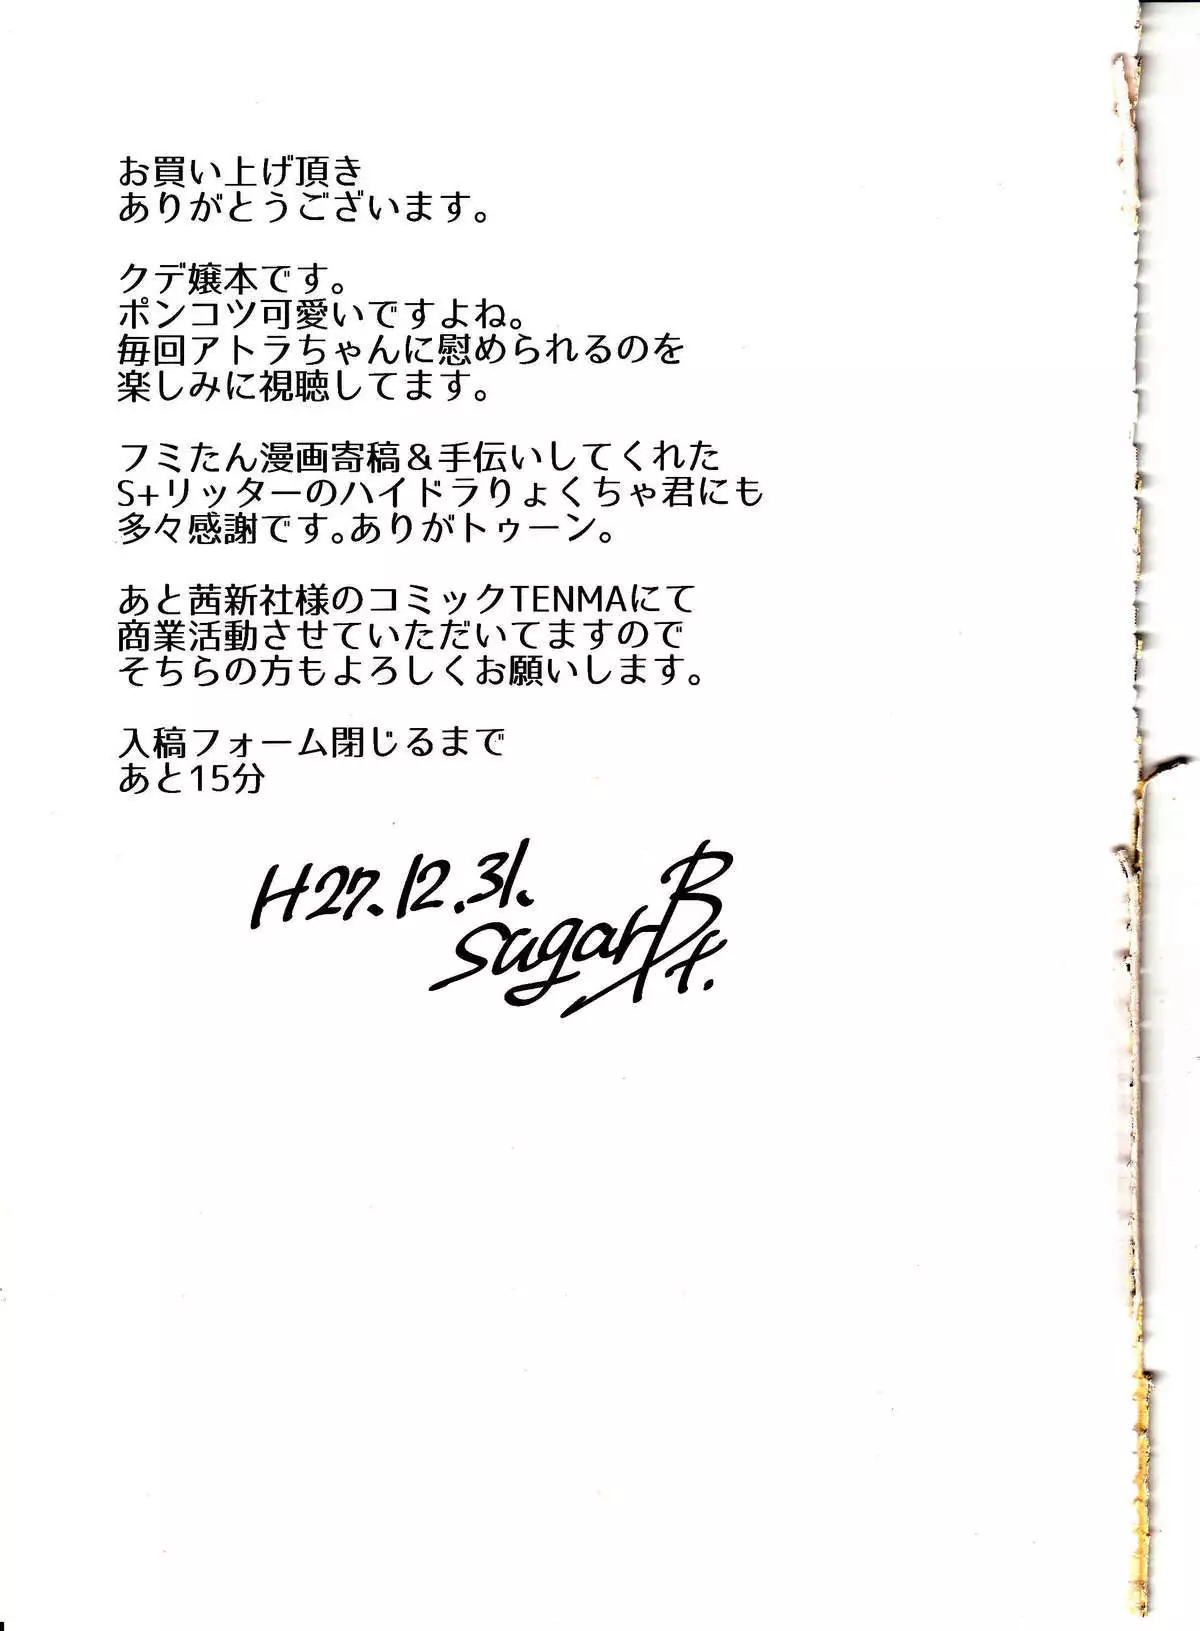 お買い上げ頂き
ありがとうございます。
クデ嬢本です。
ポンコツ可愛いですよね。
毎回アトラちゃんに慰められるのを
楽しみに視聴してます。
フミたん漫画寄稿＆手伝いしてくれた
S+リッターのハイドラりょくちゃ君にも
多々感謝です。ありがトゥーン。
あと茜新社様のコミックTENMAにて
商業活動させていただいてますので
そちらの方もよろしくお願いします。
入稿フォーム閉じるまで
あと15分
H27.12.31.
sugarBt.